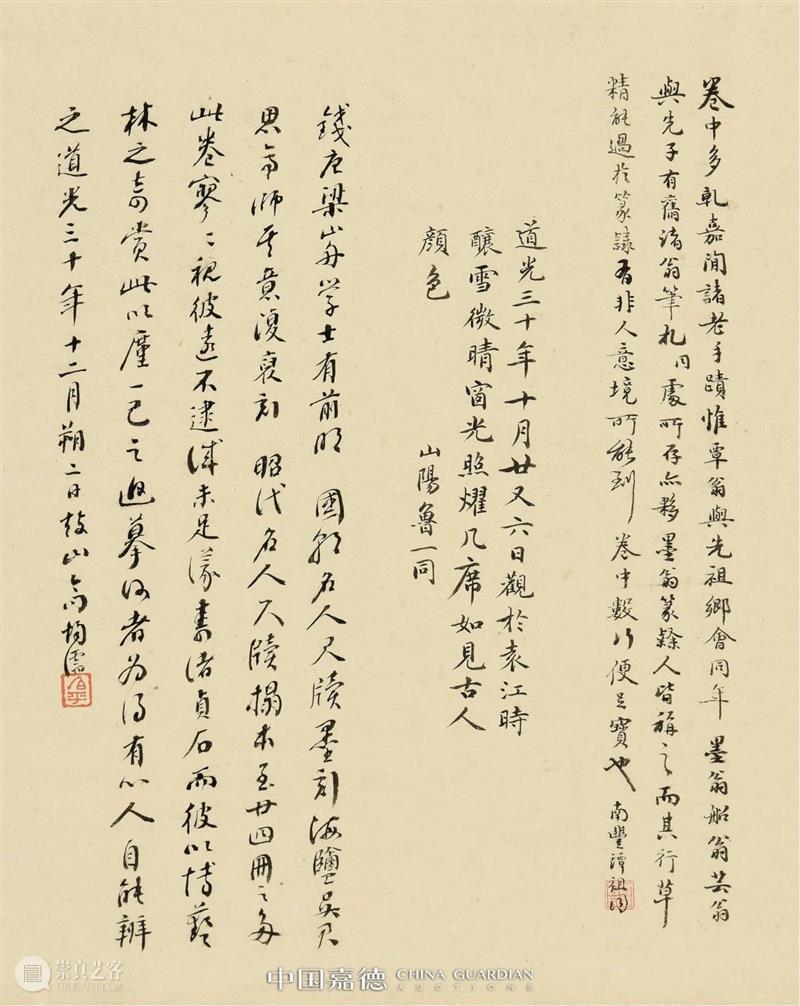 卷中多乹嘉閒諸老手蹟惟覃翁與先祖鄉會同年墨翁船翁芸翁
與先子有舊諸翁筆札同處所存亦夥墨翁篆隸人皆稱之而其行草
精能過於篆隸有非人意境所能到卷中數行便足寶也南豐譚祖同
道光三十年十月廿又六日觀於袁江時
釀雪微晴窗光照燿几席如見古人
顏色
山陽魯一同
錢唐梁山舟學士有前明國朝名人尺牘墨刻海鹽吳君
思亭師其意復裒刻昭代名人尺牘搨本至廿四冊之多
此卷寥〻視彼遠不逮誠未足濛書諸貞石而彼以博藝
林之奇賞此以廑一己之遐慕何者為得有心人自能辨
之道光三十年十二月朔二日鼓山高均儒
崇真艺客
中国嘉德 CHINA GUARDIAN
AUCTIONS